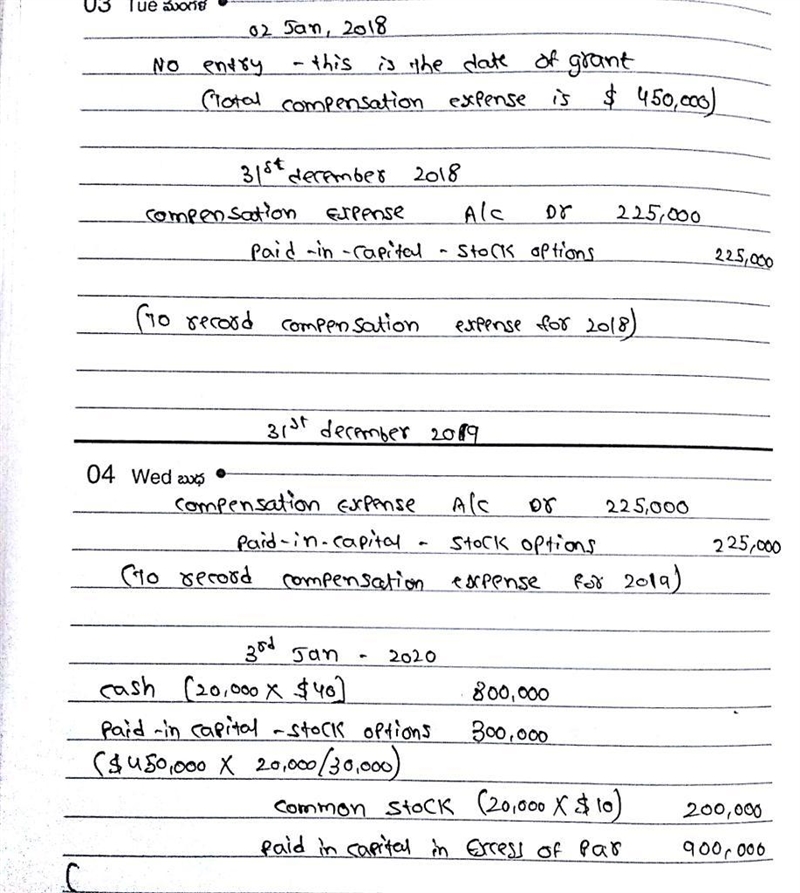 03 Tue ಮಂಗಳ
02 Jan, 2018
No entry - this is the date of grant
(Total compensation expense is $ 450,000)
31st december 2018
compensation Expense A/c Dr 225,000
Paid-in-capital - stock options 225,000
(To record compensation expense for 2018)
31st december 2019
04 Wed ಬುಧ
compensation Expense A/c Dr 225,000
Paid-in-capital - stock options 225,000
(To record compensation expense for 2019)
3rd Jan - 2020
cash [20,000 X $40] 800,000
Paid-in capital - stock options 300,000
($450,000 X 20,000/30,000)
common stock (20,000 X $10) 200,000
Paid in capital in Excess of Par 900,000
(